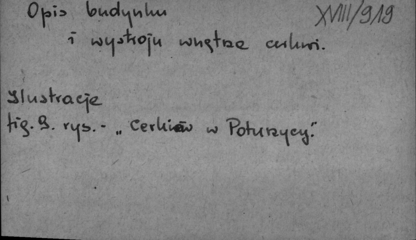 Opis budynku XVIII/919
i wystroju wnętrza cerkwi.
Ilustracje
fig. 9. rys. - „Cerkiew w Poturzycy."